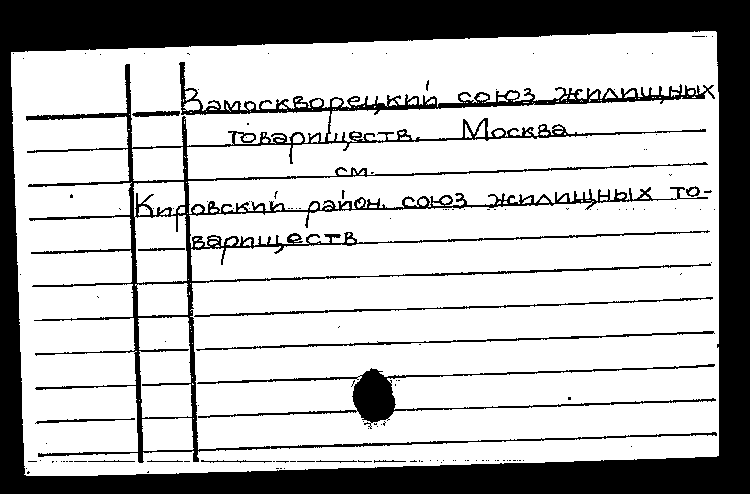 Замоскворецкий союз жилищных
товариществ. Москва.
см.
Кировский район. союз жилищных то-
вариществ